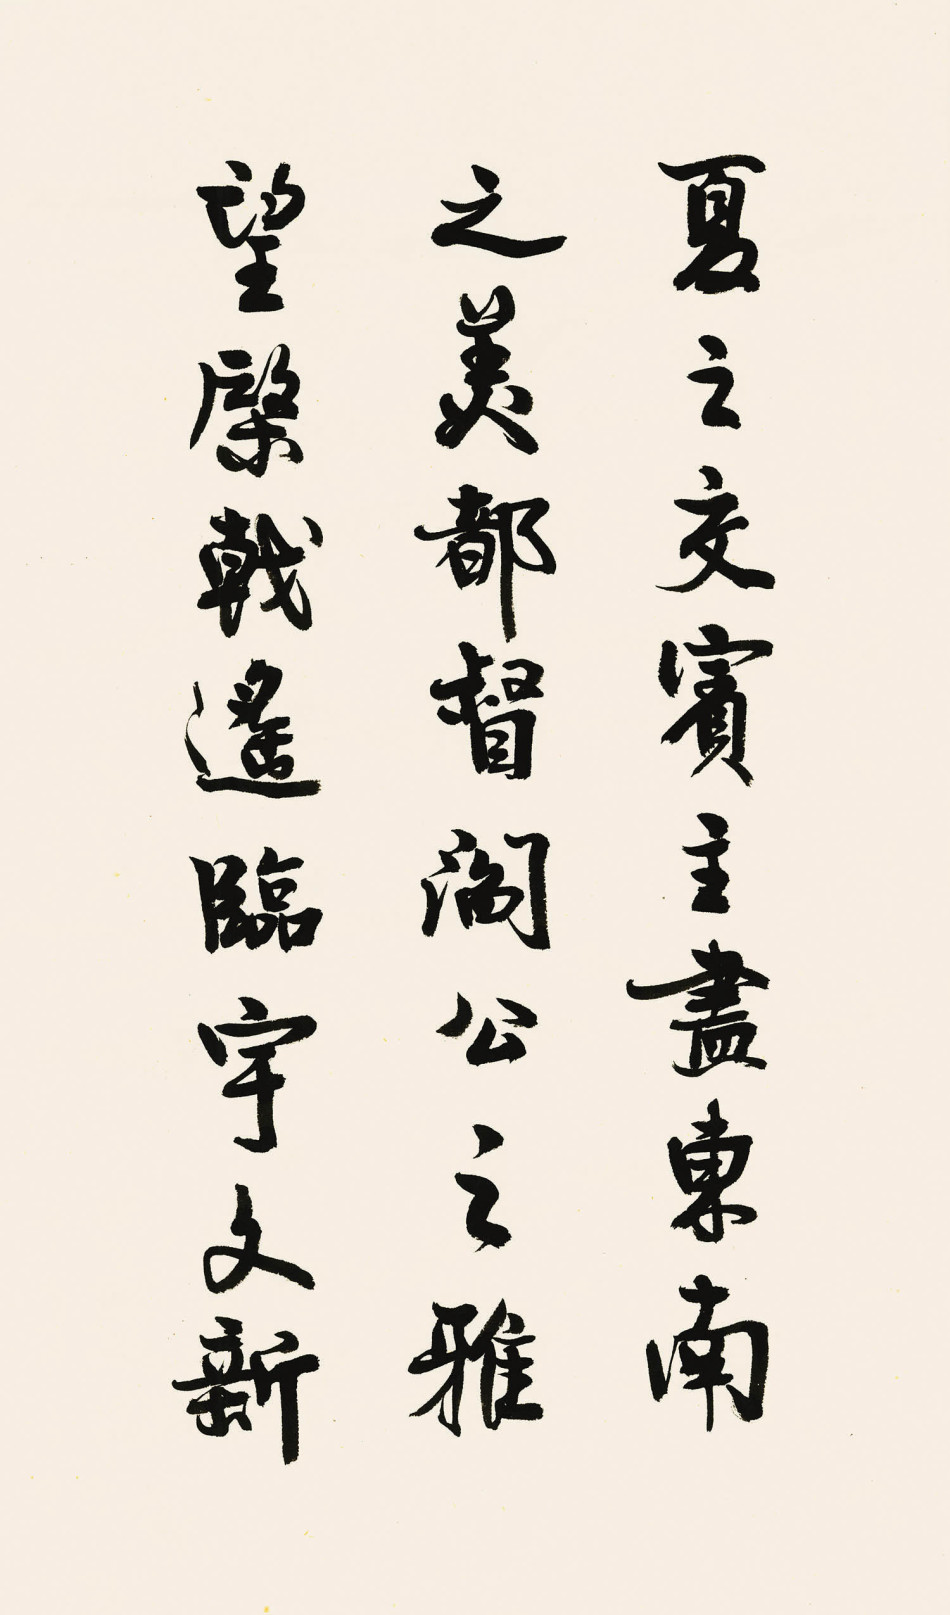 夏之交賓主盡東南
之美都督閻公之雅
望棨戟遙臨宇文新